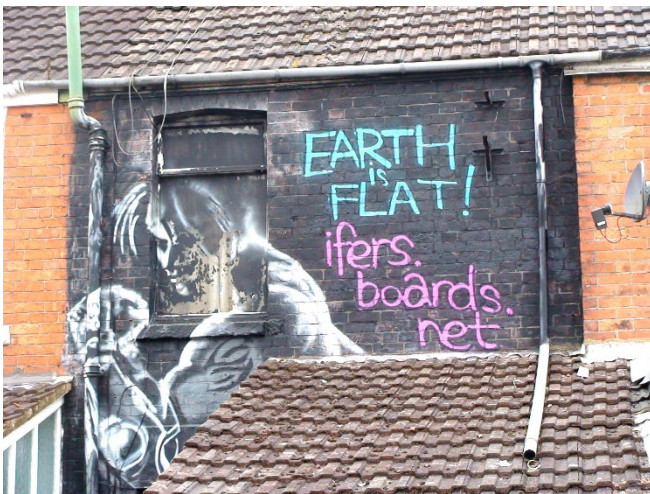 EARTH
IS
FLAT!
ifers.
boards.
net